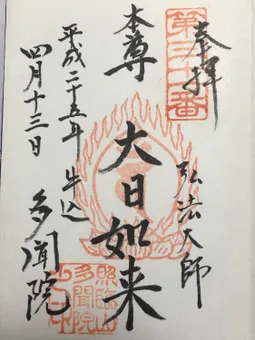 第三十一番
奉拝
弘法大師
本尊
大日如来
平成二十五年 牛込
四月十三日
多聞院
照臨山
多聞院
之印